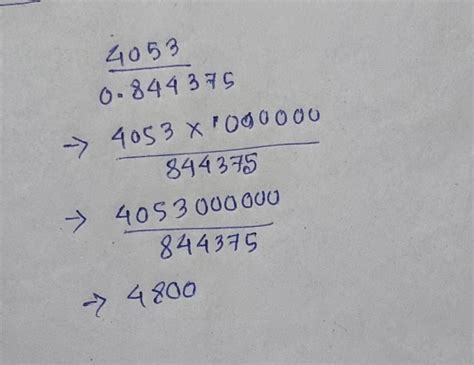 4053
0.844375
→ 4053 × 1000000
844375
→ 4053000000
844375
→ 4800